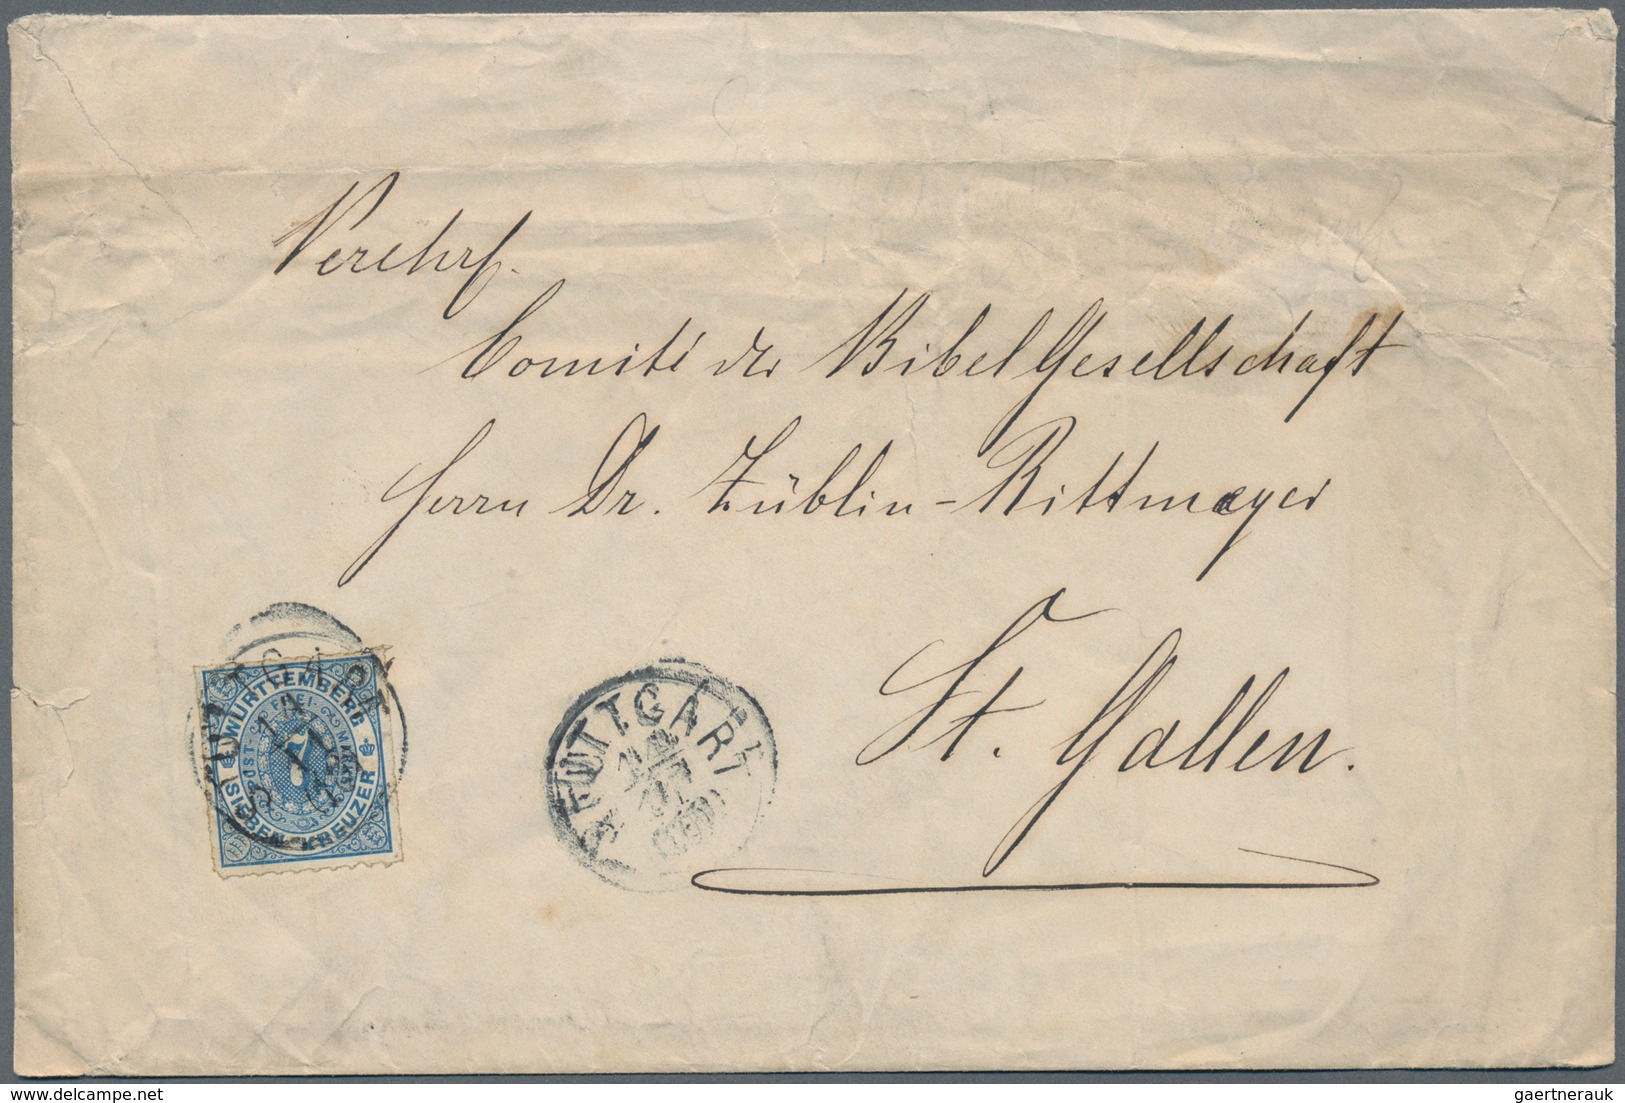 Verehrl.
Comité der Bibel Gesellschaft
Herrn Dr. Züblin-Rittmeyer
St. Gallen.
STUTTGART
WÜRTTEMBERG
FREI-MARKE
POST
7
SIEBEN KREUZER
STUTTGART
gaertnerauk